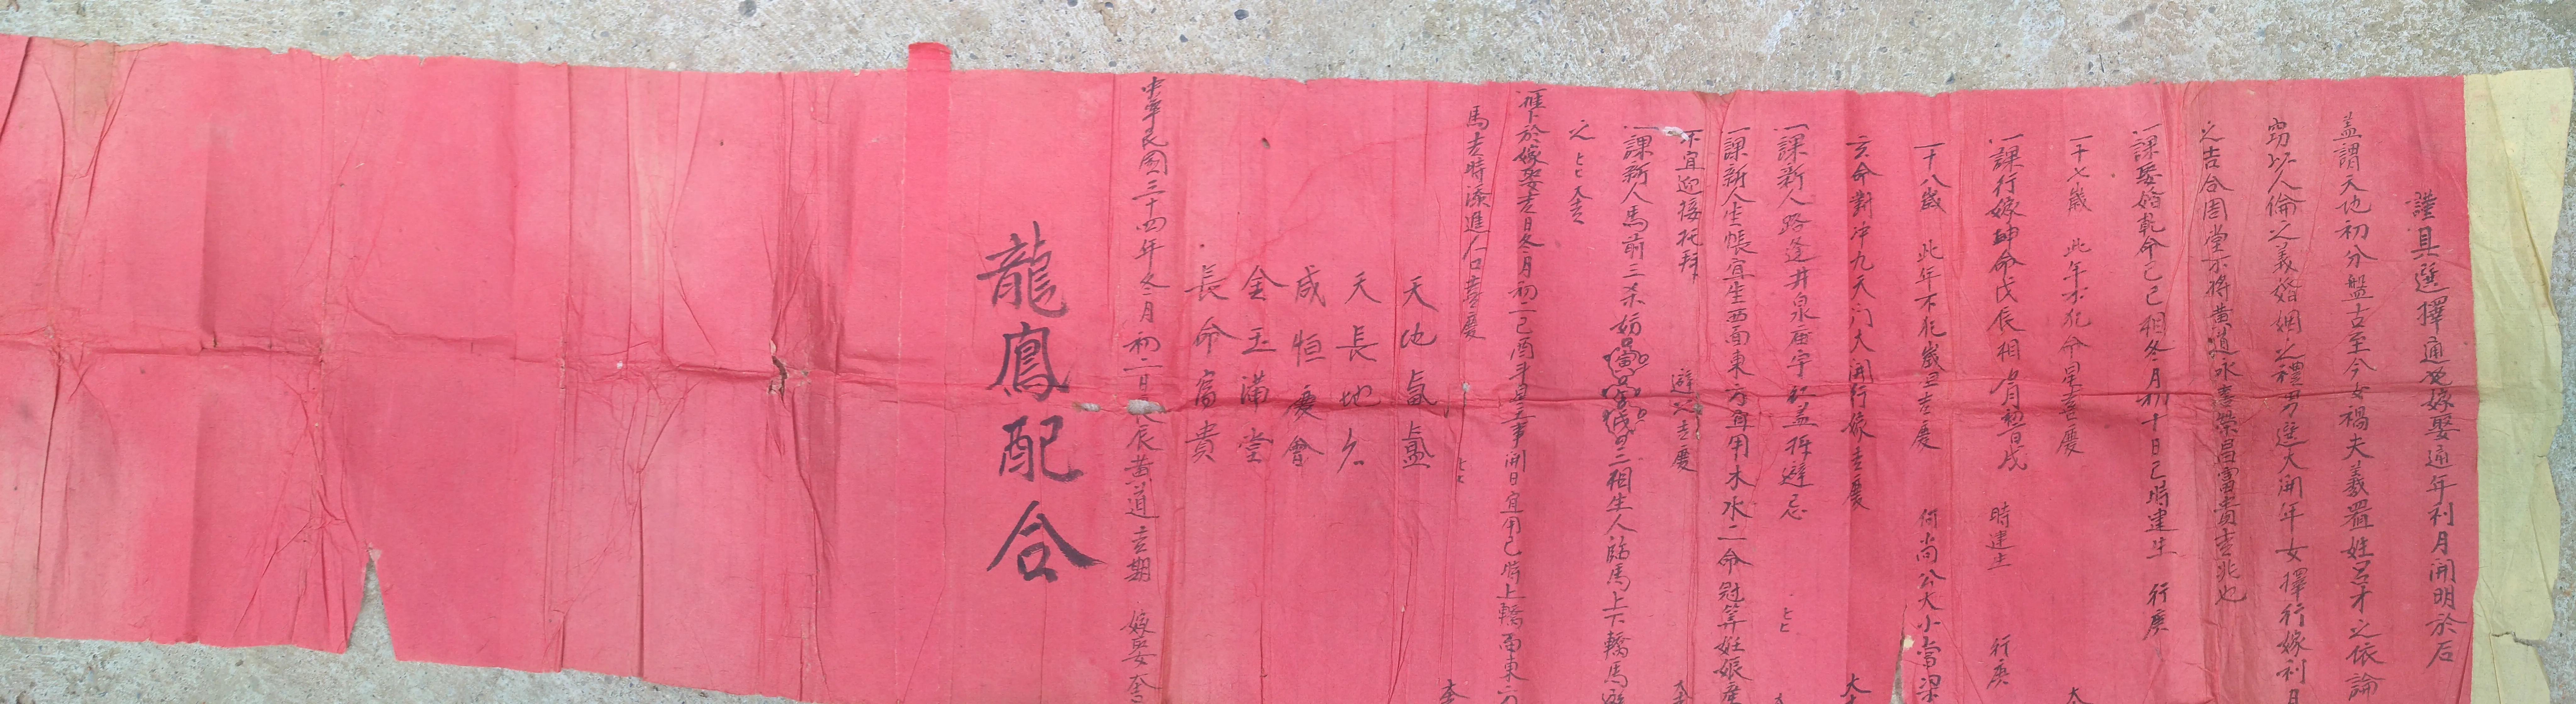 謹具選擇通書嫁娶通年利月開明於后
蓋謂天地初分盤古至今女禍夫義置姓呂才之依論
窃以人倫之義婚姻之禮男選大開年女擇行嫁利月
之吉合周堂不將黃道永喜榮昌富貴吉兆也
一課娶婚乾命己巳相冬月初十日己時建生 行庚
一十七歲 此年不犯命星吉慶
一課行嫁坤命戊辰相 月初 日戌 時建生 行庚
一十八歲 此年不犯歲星吉慶 何尚公大小
亥命對冲九天门大開行嫁吉慶
一課新人路逢井泉庙宇紅盖拜避忌
一課新人坐帳宜生西面東方宜用木水二命冠笄妊娠產
不宜迎接托拜 避之吉慶
一課新人馬前三杀妨 三相生人臨馬上下轎馬
之 大吉
一推卜於嫁娶吉日冬月初二己酉 開日宜用己時上轎面東方
馬吉時添進人口喜慶
天地氤氳
天長地久
咸恒慶會
金玉滿堂
長命富貴
中華民國三十四年冬月初二日 黃道吉期 嫁娶
龍鳳配合